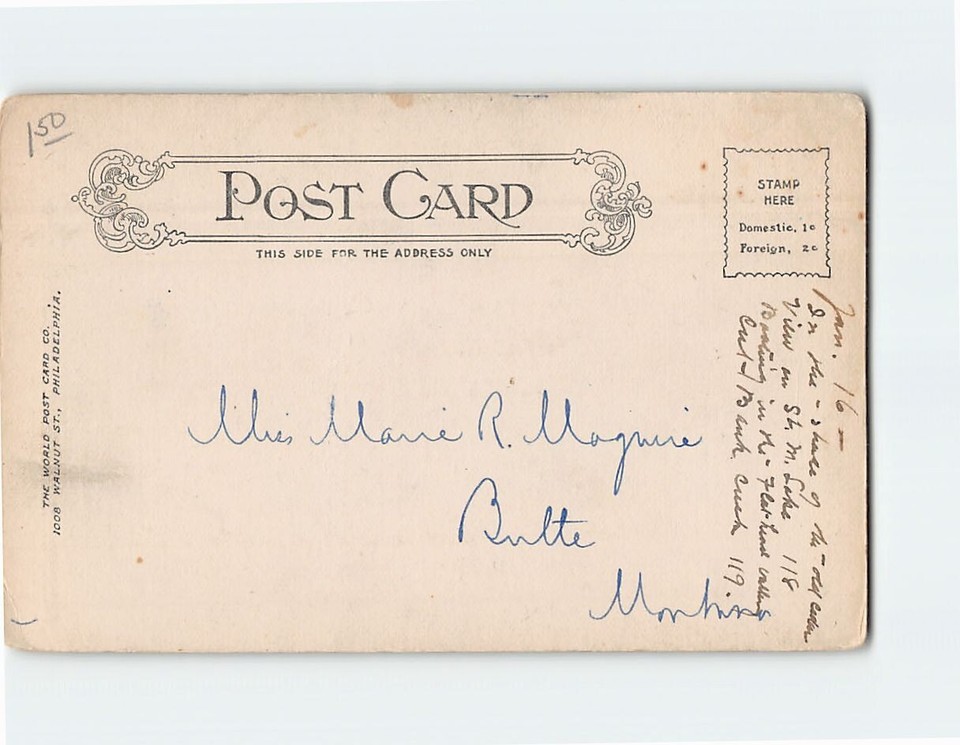 1 50
POST CARD
THIS SIDE FOR THE ADDRESS ONLY
STAMP
HERE
Domestic, 1c
Foreign, 2c
THE WORLD POST CARD CO.
1008 WALNUT ST., PHILADELPHIA.
Miss Marie R. Maguire
Butte
Montana
Jan. 16 -
In the - shade of the - old cedar
View on St. M. Lake 118
Boating in the - Flathead valley
Cut Bank Creek 119.